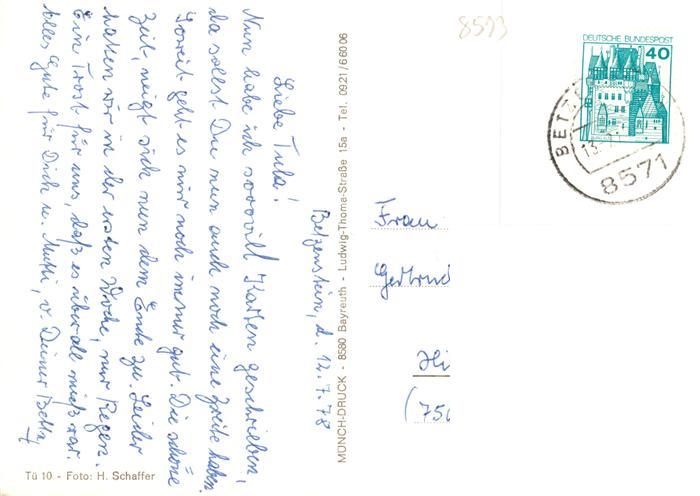 Betzenstein, d. 12.7.78
Liebe Tula!
Nun habe ich sooovill Karten geschrieben,
da sollst Du nun auch noch eine Zweite haben.
Soweit geht es mir noch immer gut. Die schöne
Zeit, neigt sich nun dem Ende zu. Leider
hatten wir in der ersten Woche, nur Regen.
Ein Trost für uns, daß es über-all mieß war.
Alles Gute für Dich u. Mutti, v. Deiner Betta,
Tü 10 - Foto: H. Schaffer
MÜNCH-DRUCK - 8580 Bayreuth - Ludwig-Thoma-Straße 15a - Tel. 0921/66006
8593
DEUTSCHE BUNDESPOST
40
BETZ
13.
8571
Frau
Gertrud
Hi
(756